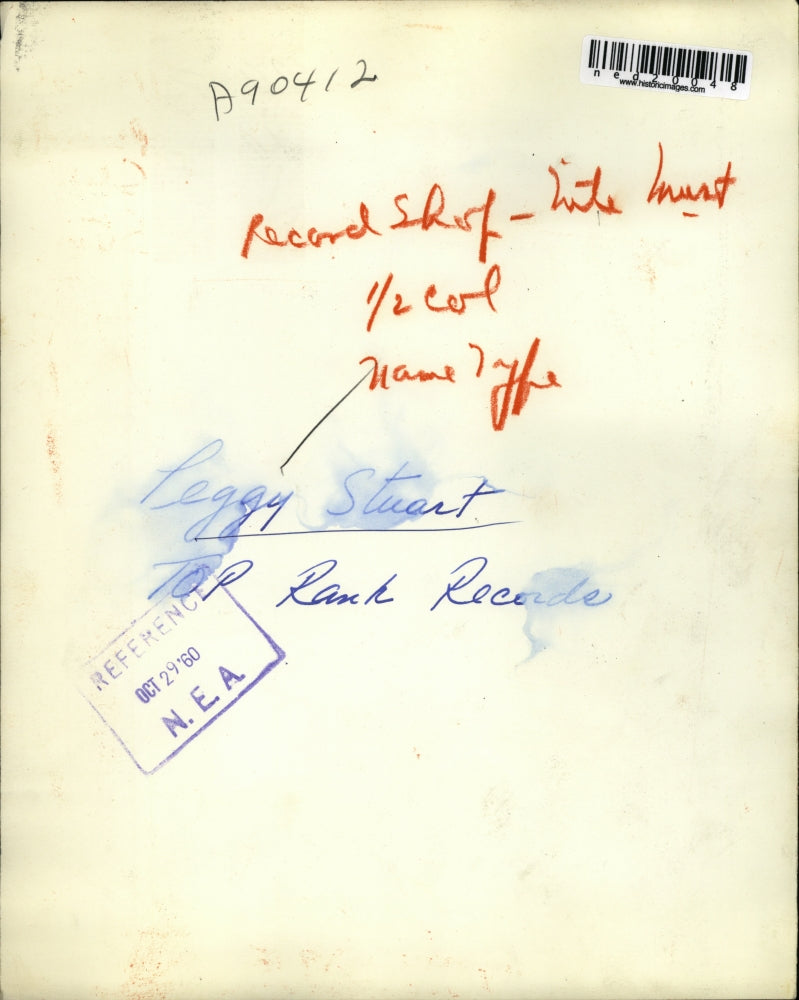 A90412
ned20048
www.historicimages.com
Record Shop - must
1/2 col
Name Type
Peggy Stuart
TOP Rank Records
REFERENCE
OCT 29 '60
N. E. A.